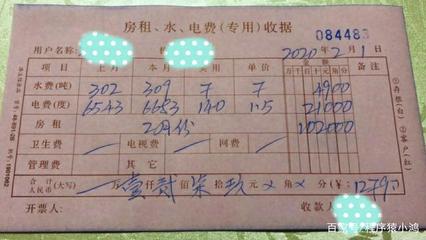 房租、水、电费(专用)收据
084483
用户名:
2020年2月1日
项目 上月 本月 实用 单价 金额 备注
万千百十元角分
水费(吨) 302 309 7 7 4900
电费(度) 6543 6683 140 1.5 21000
房租 2月份 102000
卫生费 电视费 网费
管理费 其它
合计人民币(大写) 万壹仟贰佰柒拾玖元 角 分(¥:1279)
开票人: 收款人
①存根(白) ②客户(红)
百家号/程序猿小鸿